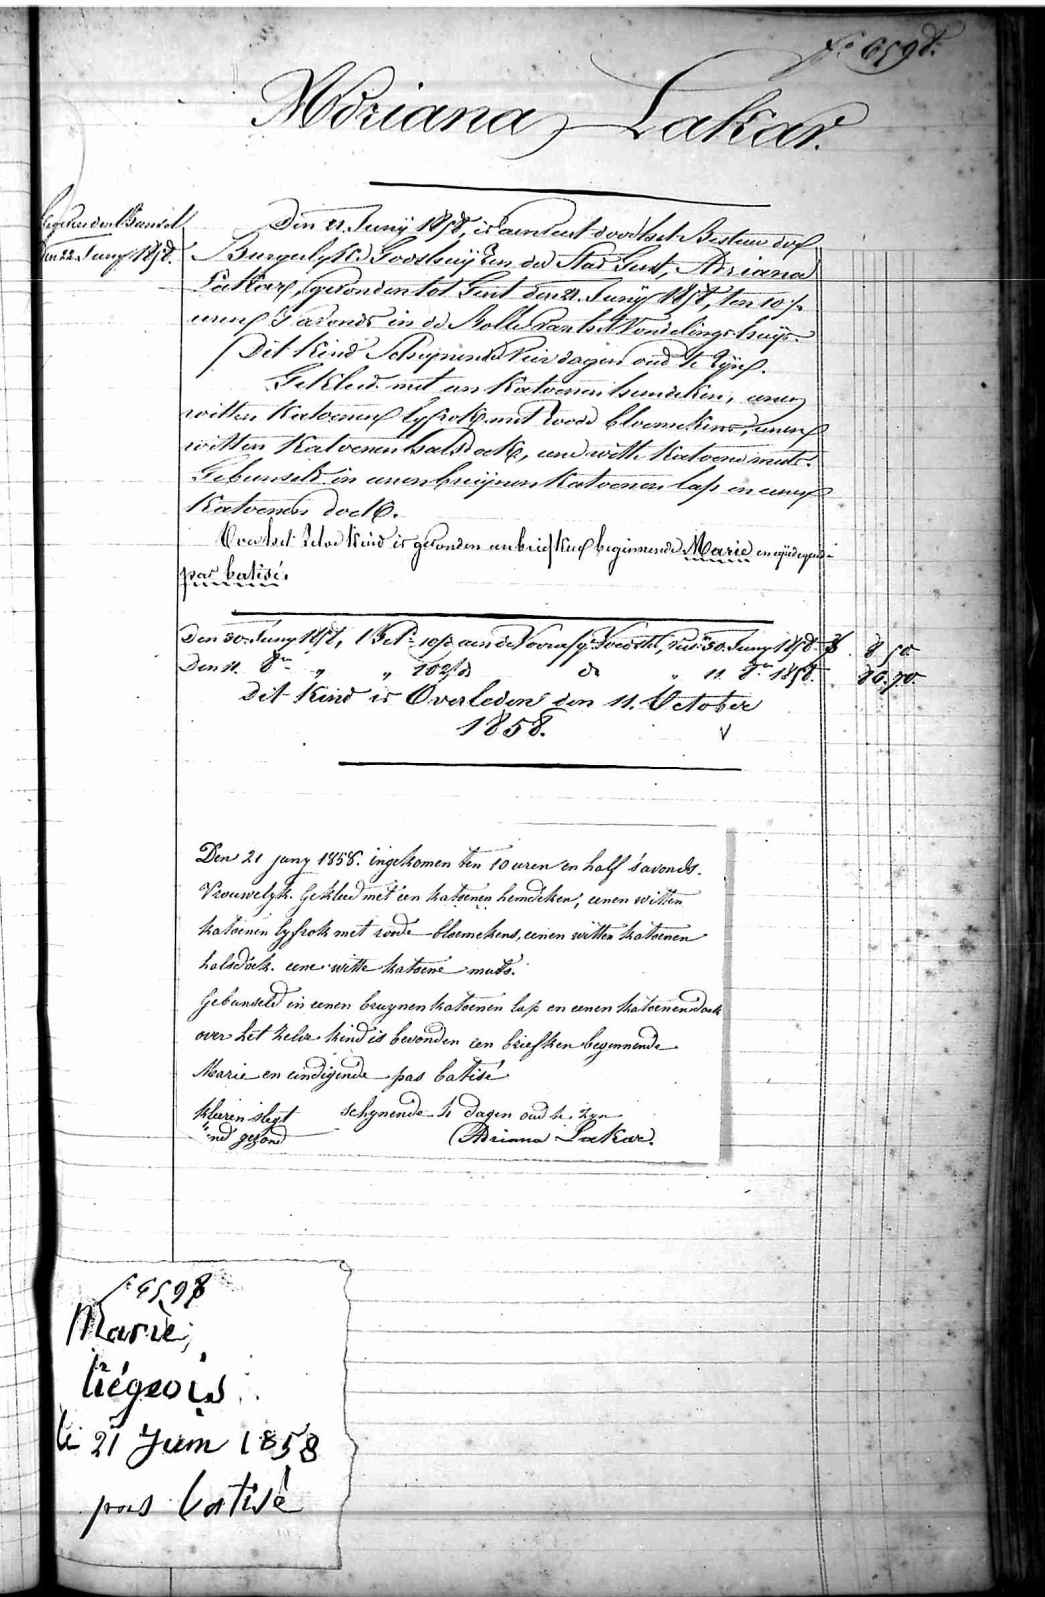 Nº 6598.
Adriana Lakar.
Den 22 Juny 1858.
Den 21. Juny 1858, is aenveert door het Bestuer der
Burgerlyke Godshuyzen der Stad Gent, Adriana
Lakar, gevonden tot Gent den 21. Juny 1858, ten 10 ½
uren 's avonds in de Rolle van het Vondelingshuys.
Dit Kind schynende vier dagen oud te zyn.
Gekleed met een Katoenen hemdeken, eenen
witten Katoenen lyfrok met roode bloemekens, eenen
witten Katoenen halsdoek, eene witte Katoene muts.
Gebunseld in eenen bruynen Katoenen lap en eenen
Katoenen doek.
Over het zelve Kind is gevonden een briefken beginnende Marie en eyndigende
pas batisé.
Den 30. Juny 1858, 10 ½ aen de 30. Juny 1858 8 50
Den 11. 8er " " 102 ds do " 11 8er 1858. 86.70
Dit Kind is Overleden den 11. October
1858.
Den 21 juny 1858. ingekomen ten 10 uren en half s'avonds.
Vrouwelyk. Gekleed met een katoenen hemdeken, eenen witten
katoenen lyfrok met roode bloemekens, eenen witten katoenen
halsdoek. eene witte katoene muts.
Gebunseld in eenen bruynen katoenen lap en eenen katoenen doek
over het zelve kind is bevonden een briefken beginnende
Marie en eindigende pas batisé
kleeren slegt schynende 4 dagen oud te zyn
kind gezond Adriana Lakar.
Nº 6598
Marie,
liégeois
le 21 Juin 1858
pas batisé